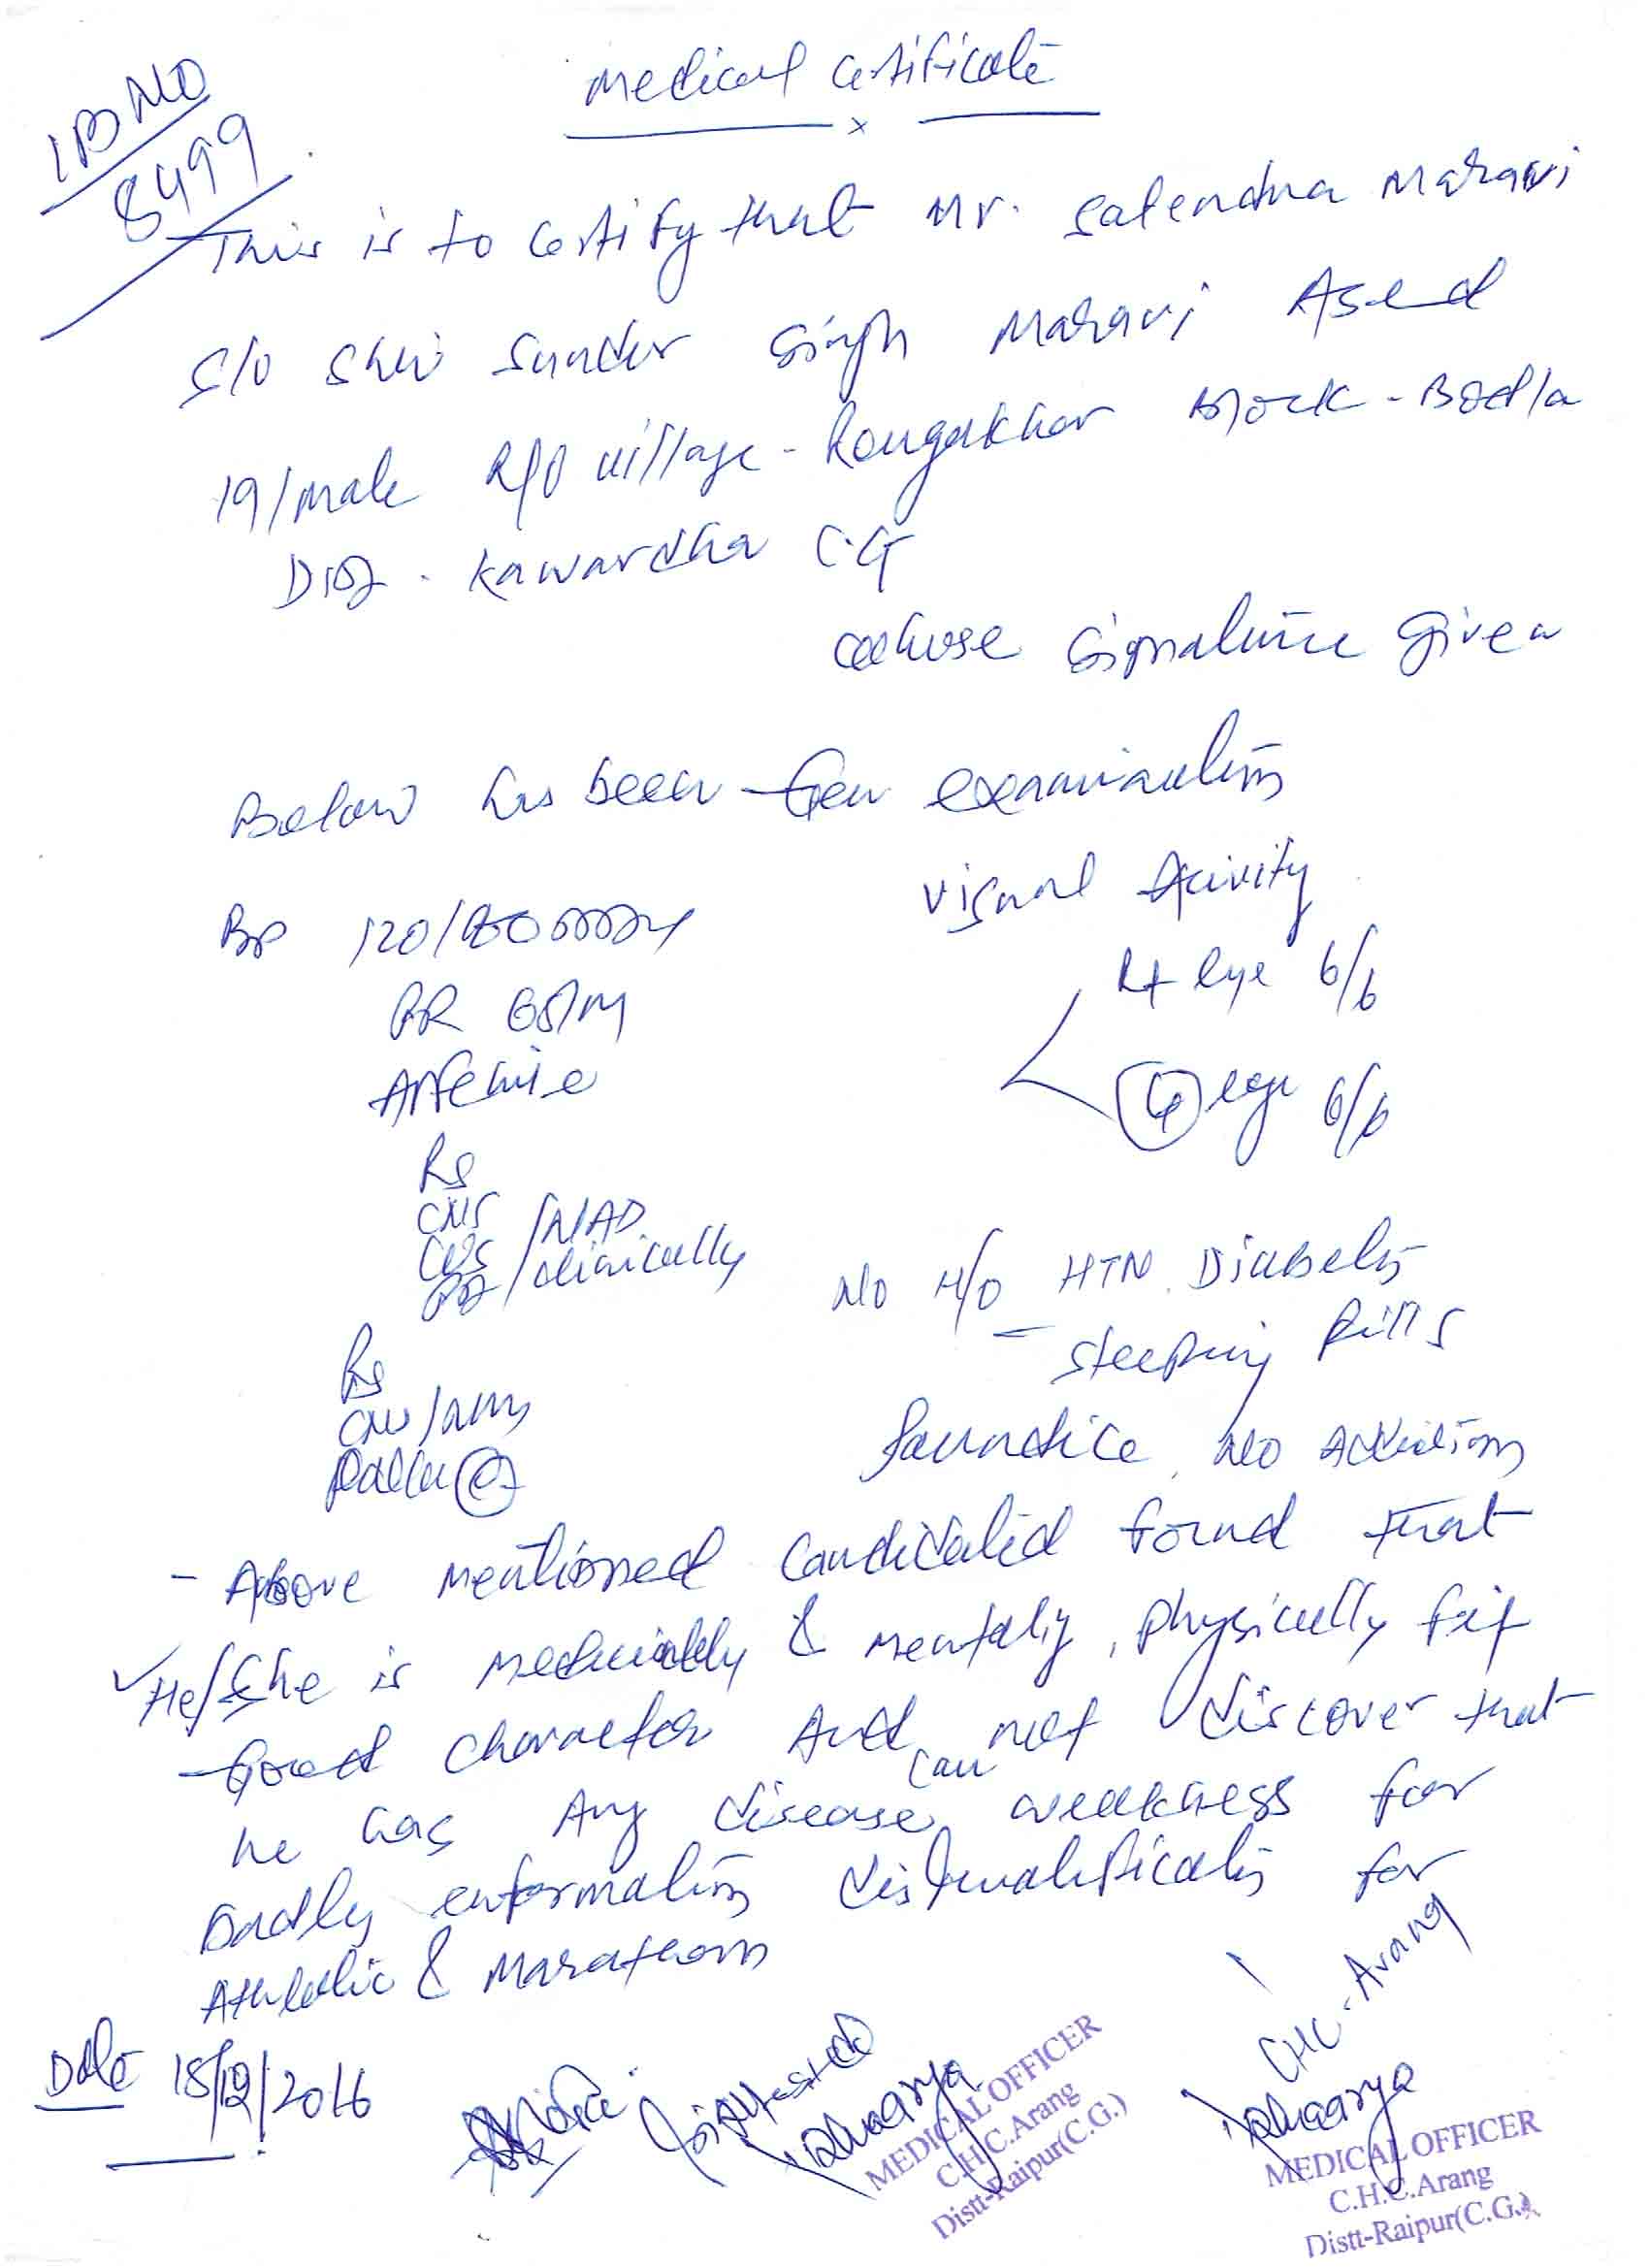 Medical Certificate
IB NO
8499
This is to Certify that Mr. Satendra Maravi
S/O Shri Sunder Singh Maravi Aged
19/male R/O village - Rengakhar Block - Bodla
Dist. Kawardha C.G
whose Signature given
Below has been examination
BP 120/80
Visual Acivity
Rt eye 6/6
PR /M
eye 6/6
Anemie
RS
CNS /NAD
CVS /clinically
No H/O HTN. Diabetes
Sleeping Pills
RS
Jaundice, No Addiction
- Above mentioned Candidated found that
He/She is Medically & Mentally, Physically fit
Good character And can not discover that
he has Any disease, weakness for
Badly disqualification for
Athletic & Marathon
Date 18/12/2016
CHC - Arang
Attested
MEDICAL OFFICER
C.H.C. Arang
Distt-Raipur(C.G.)
MEDICAL OFFICER
C.H.C. Arang
Distt-Raipur(C.G.)